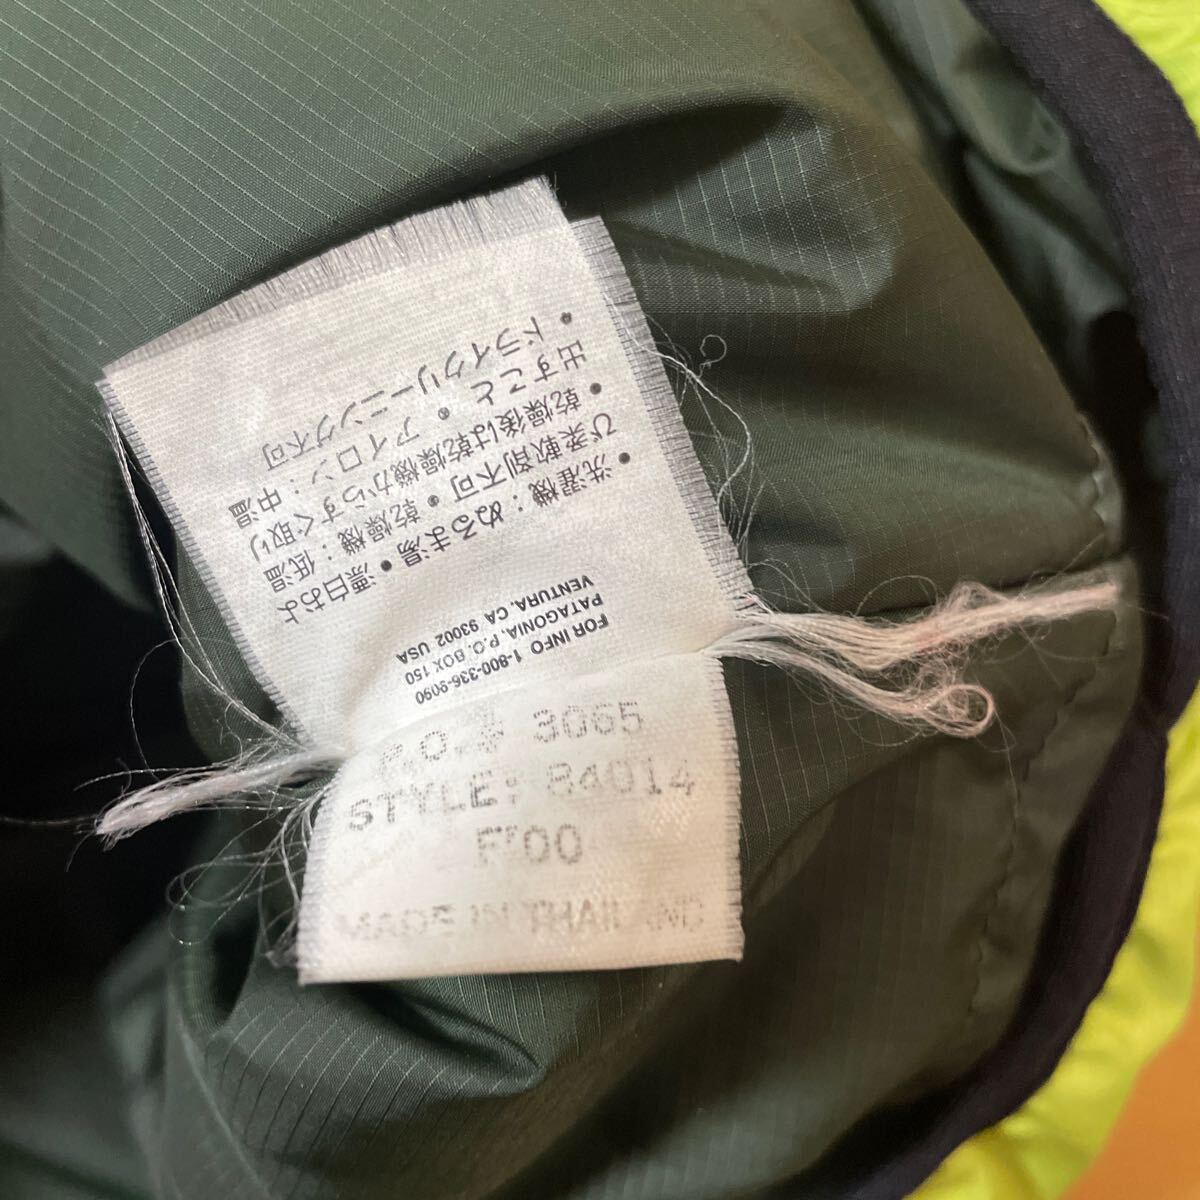 FOR INFO 1-800-336-9090
PATAGONIA, P.O. BOX 150
VENTURA, CA 93002 USA
•洗濯機:ぬるま湯•漂白およ
び柔軟剤不可•乾燥機:低温
•乾燥後は乾燥機からすぐ取り
出すこと•アイロン:中温
•ドライクリーニング不可
P.O.# 3065
STYLE: 84014
F'00
MADE IN THAILAND